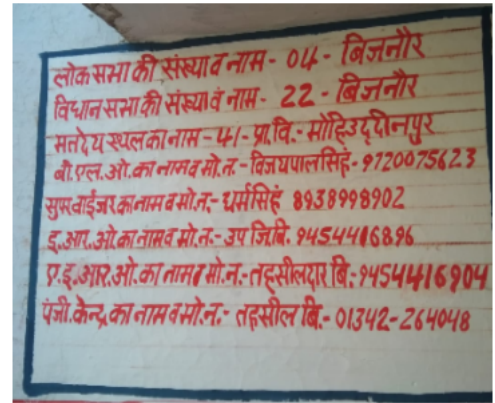 लोक सभा की संख्या व नाम - 04 - बिजनौर
विधान सभा की संख्या व नाम - 22 - बिजनौर
मतदेय स्थल का नाम - 41 - प्रा.वि. - मोहिउद्दीनपुर
बी.एल.ओ. का नाम व मो.न. - विजयपाल सिंह - 9720075623
सुपरवाईजर का नाम व मो.न. - धर्म सिंह 8938998902
इ.आर.ओ. का नाम व मो.न. - उप जि.बि. 9454416896
ए.इ.आर.ओ. का नाम व मो.न. - तहसीलदार बि. - 9454416904
पंजी. केन्द्र का नाम व मो.न. - तहसील बि. - 01342-264048